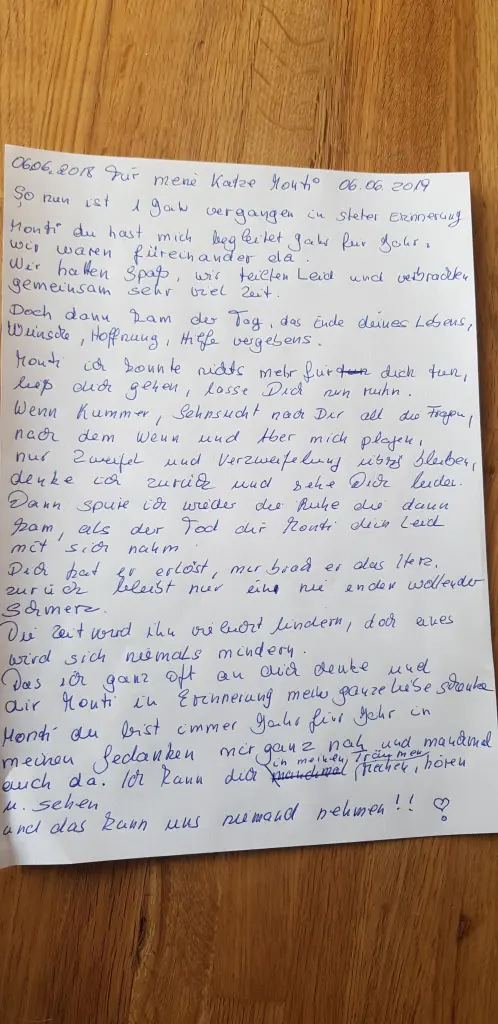 06.06.2018 Für meine Katze Monti 06.06.2019
So nun ist 1 Jahr vergangen in steter Erinnerung
Monti du hast mich begleitet Jahr für Jahr,
wir waren füreinander da.
Wir hatten Spaß, wir teilten Leid und verbrachten
gemeinsam sehr viel Zeit.
Doch dann kam der Tag, das Ende deines Lebens,
Wünsche, Hoffnung, Hilfe vergebens.
Monti ich konnte nichts mehr für tun dich tun,
ließ dich gehen, lasse Dich nun ruhn.
Wenn Kummer, Sehnsucht nach Dir all die Fragen,
nach dem Wenn und Aber mich plagen,
nur Zweifel und Verzweifelung übrig bleiben,
denke ich zurück und sehe Dich leiden.
Dann spüre ich wieder die Ruhe die dann
kam, als der Tod dir Monti dein Leid
mit sich nahm.
Dich hat er erlöst, mir brach er das Herz,
zurück bleibt nur ein nie enden wollender
Schmerz.
Die Zeit wird ihn vielleicht lindern, doch eines
wird sich niemals mindern.
Das ich ganz oft an dich denke und
dir Monti in Erinnerung meine ganze Liebe schenke
Monti du bist immer Jahr für Jahr in
meinen Gedanken mir ganz nah und manchmal
in meinen Träumen
auch da. Ich kann dich manchmal hören
u. sehen
und das kann uns niemand nehmen!!